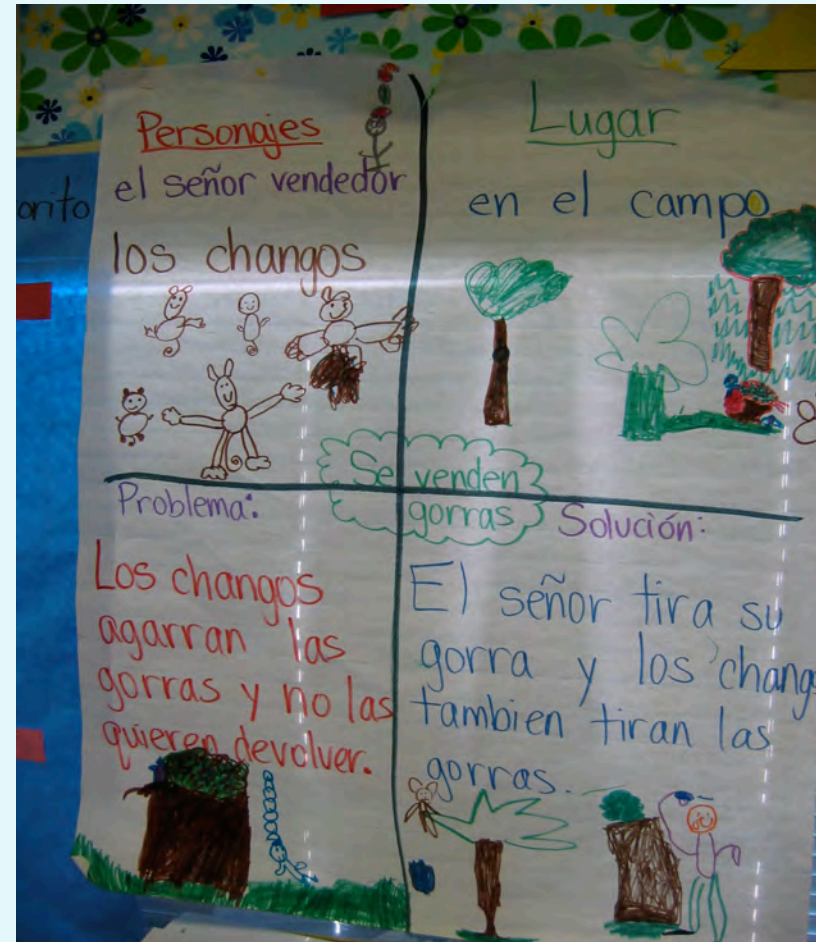 Personajes
el señor vendedor
los changos
Lugar
en el campo
Se venden
gorras
Problema:
Los changos
agarran las
gorras y no las
quieren devolver.
Solución:
El señor tira su
gorra y los chang
tambien tiran las
gorras.
orito